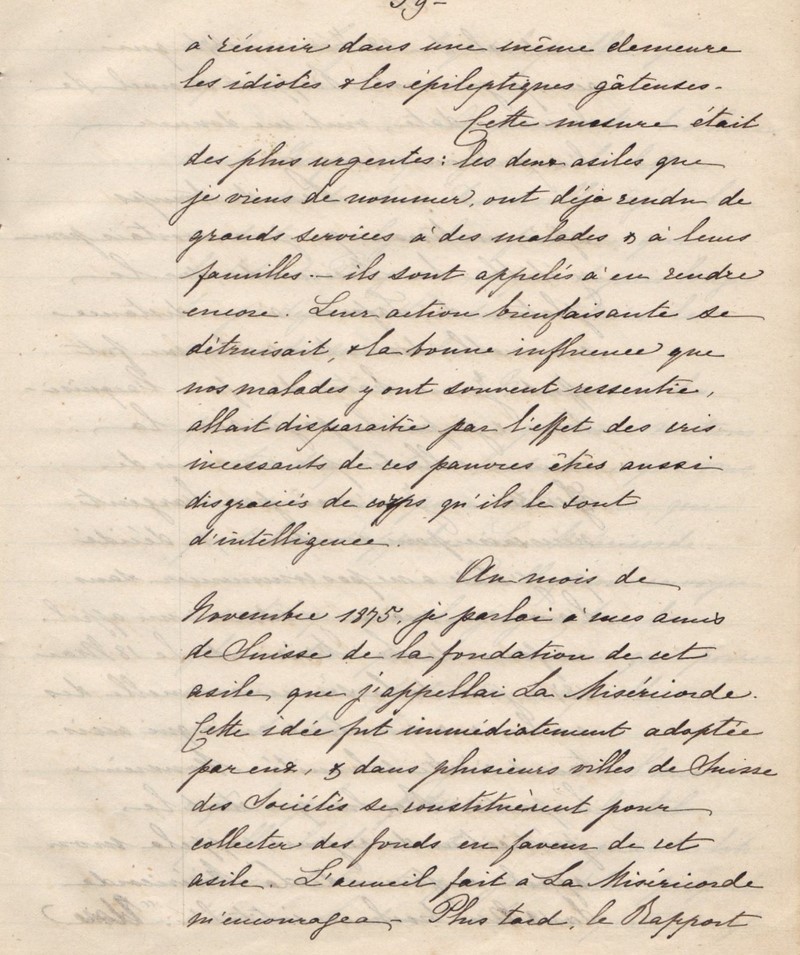 59-
à réunir dans une même demeure
les idiotes & les épileptiques gâteuses.
Cette mesure était
des plus urgentes: les deux asiles que
je viens de nommer, ont déjà rendu de
grands services à des malades & à leurs
familles. - ils sont appelés à en rendre
encore. Leur action bienfaisante se
détruisait, & la bonne influence que
nos malades y ont souvent ressentie,
allait disparaitre par l'effet des cris
incessants de ces pauvres êtres aussi
disgraciés de corps qu'ils le sont
d'intelligence.
Au mois de
Novembre 1875, je parlai à mes amis
de Suisse de la fondation de cet
asile, que j'appellai La Miséricorde.
Cette idée fut immédiatement adoptée
par eux, & dans plusieurs villes de Suisse
des Sociétés se constituèrent pour
collecter des fonds en faveur de cet
asile. L'accueil fait à La Miséricorde
m'encouragea - Plus tard, le Rapport